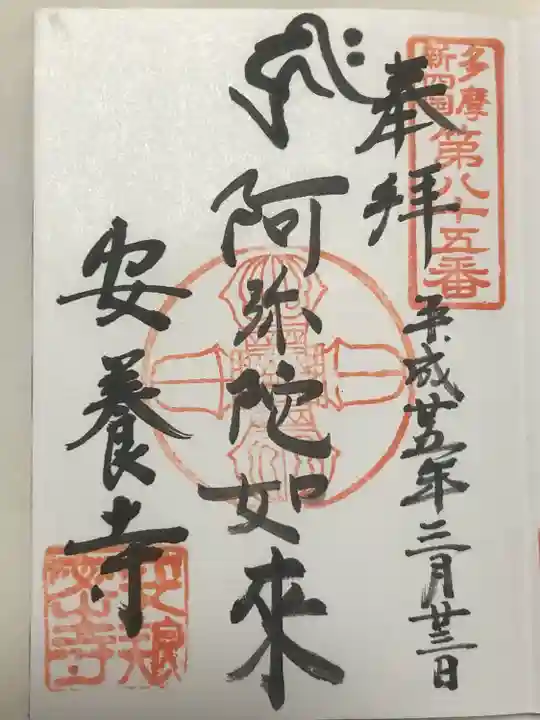 多摩
新四国
第八十五番
奉拝
平成廿五年三月廿三日
阿弥陀如來
安養寺